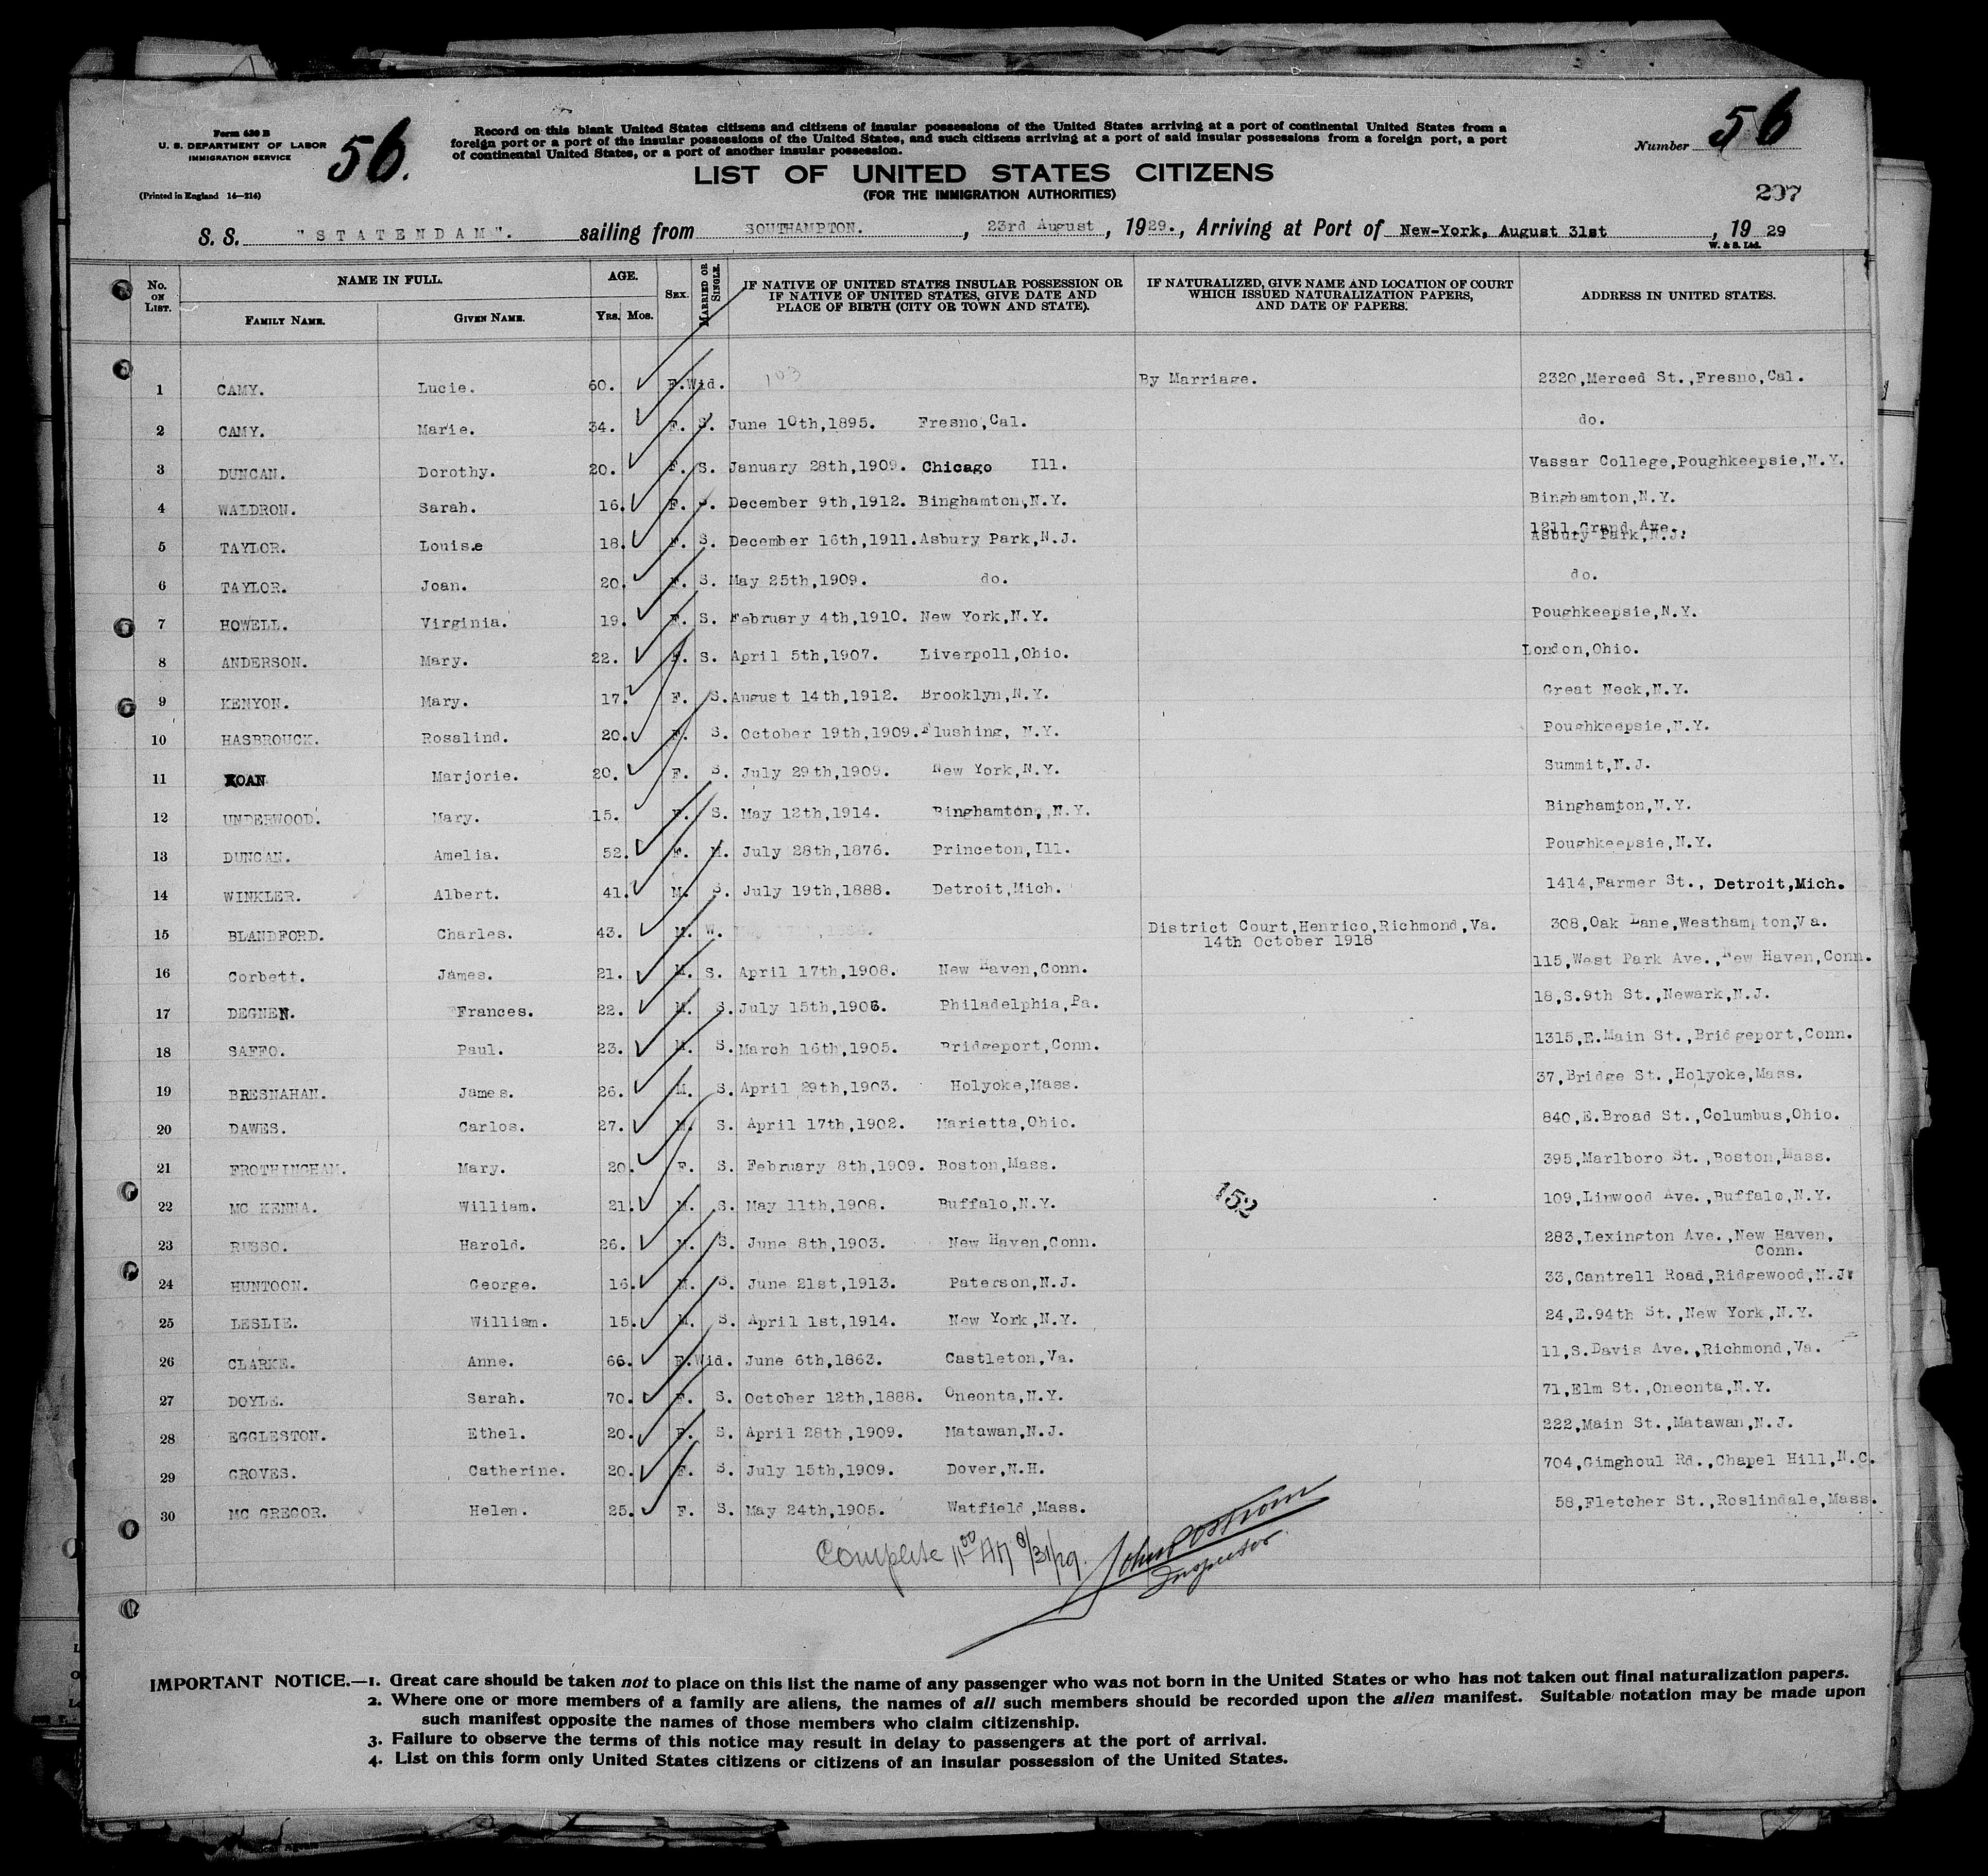 Form 630 B
U. S. DEPARTMENT OF LABOR
IMMIGRATION SERVICE
(Printed in England 14—214)
56.
Record on this blank United States citizens and citizens of insular possessions of the United States arriving at a port of continental United States from a
foreign port or a port of the insular possessions of the United States, and such citizens arriving at a port of said insular possessions from a foreign port, a port
of continental United States, or a port of another insular possession.
LIST OF UNITED STATES CITIZENS
(FOR THE IMMIGRATION AUTHORITIES)
Number 56
207
S. S. "STATENDAM". sailing from SOUTHAMPTON. , 23rd August , 1929. , Arriving at Port of New-York, August 31st , 19 29
W. & S. Ltd.
No. ON LIST. NAME IN FULL. FAMILY NAME. GIVEN NAME. AGE. YRS. MOS. SEX. MARRIED OR SINGLE. IF NATIVE OF UNITED STATES INSULAR POSSESSION OR IF NATIVE OF UNITED STATES, GIVE DATE AND PLACE OF BIRTH (CITY OR TOWN AND STATE). IF NATURALIZED, GIVE NAME AND LOCATION OF COURT WHICH ISSUED NATURALIZATION PAPERS, AND DATE OF PAPERS. ADDRESS IN UNITED STATES.
1 CAMY. Lucie. 60. F. Wid. 103 By Marriage. 2320,Merced St.,Fresno,Cal.
2 CAMY. Marie. 34. F. S. June 10th,1895. Fresno,Cal. do.
3 DUNCAN. Dorothy. 20. F. S. January 28th,1909. Chicago Ill. Vassar College,Poughkeepsie,N.Y.
4 WALDRON. Sarah. 16. F. S. December 9th,1912. Binghamton,N.Y. Binghamton,N.Y.
5 TAYLOR. Louise 18. F. S. December 16th,1911. Asbury Park,N.J. 1211 Grand Ave., Asbury Park,N.J.
6 TAYLOR. Joan. 20. F. S. May 25th,1909. do. do.
7 HOWELL. Virginia. 19. F. S. February 4th,1910. New York,N.Y. Poughkeepsie,N.Y.
8 ANDERSON. Mary. 22. F. S. April 5th,1907. Liverpoll,Ohio. London,Ohio.
9 KENYON. Mary. 17. F. S. August 14th,1912. Brooklyn,N.Y. Great Neck,N.Y.
10 HASBROUCK. Rosalind. 20. F. S. October 19th,1909. Flushing, N.Y. Poughkeepsie,N.Y.
11 Marjorie. 20. F. S. July 29th,1909. New York,N.Y. Summit,N.J.
12 UNDERWOOD. Mary. 15. F. S. May 12th,1914. Binghamton, N.Y. Binghamton,N.Y.
13 DUNCAN. Amelia. 52. F. M. July 28th,1876. Princeton,Ill. Poughkeepsie,N.Y.
14 WINKLER. Albert. 41. M. S. July 19th,1888. Detroit,Mich. 1414,Farmer St., Detroit,Mich.
15 BLANDFORD. Charles. 43. M. W. District Court,Henrico,Richmond,Va. 308,Oak Lane,Westhampton,Va.
14th October 1918
16 Corbett. James. 21. M. S. April 17th,1908. New Haven,Conn. 115,West Park Ave.,New Haven,Conn.
17 DEGNEN. Frances. 22. M. S. July 15th,1906. Philadelphia,Pa. 18,S.9th St.,Newark,N.J.
18 SAFFO. Paul. 23. M. S. March 16th,1905. Bridgeport,Conn. 1315,E.Main St.,Bridgeport,Conn.
19 BRESNAHAN. James. 26. M. S. April 29th,1903. Holyoke,Mass. 37,Bridge St.,Holyoke,Mass.
20 DAWES. Carlos. 27. M. S. April 17th,1902. Marietta,Ohio. 840,E.Broad St.,Columbus,Ohio.
21 FROTHINGHAM. Mary. 20. F. S. February 8th,1909. Boston,Mass. 395,Marlboro St.,Boston,Mass.
22 MC KENNA. William. 21. M. S. May 11th,1908. Buffalo,N.Y. 152 109,Linwood Ave.,Buffalo,N.Y.
23 RUSSO. Harold. 26. M. S. June 8th,1903. New Haven,Conn. 283,Lexington Ave.,New Haven,
Conn.
24 HUNTOON. George. 16. M. S. June 21st,1913. Paterson,N.J. 33,Cantrell Road,Ridgewood,N.J.
25 LESLIE. William. 15. M. S. April 1st,1914. New York,N.Y. 24,E.94th St.,New York,N.Y.
26 CLARKE. Anne. 66. F. Wid. June 6th,1863. Castleton,Va. 11,S.Davis Ave.,Richmond,Va.
27 DOYLE. Sarah. 70. F. S. October 12th,1888. Oneonta,N.Y. 71,Elm St.,Oneonta,N.Y.
28 EGGLESTON. Ethel. 20. F. S. April 28th,1909. Matawan,N.J. 222,Main St.,Matawan,N.J.
29 GROVES. Catherine. 20. F. S. July 15th,1909. Dover,N.H. 704,Gimghoul Rd.,Chapel Hill,N.C.
30 MC GREGOR. Helen. 25. F. S. May 24th,1905. Watfield,Mass. 58,Fletcher St.,Roslindale,Mass.
Complete 11 00 AM 8/31/29. John Ostrom
Inspector
IMPORTANT NOTICE.—1. Great care should be taken not to place on this list the name of any passenger who was not born in the United States or who has not taken out final naturalization papers.
2. Where one or more members of a family are aliens, the names of all such members should be recorded upon the alien manifest. Suitable notation may be made upon
such manifest opposite the names of those members who claim citizenship.
3. Failure to observe the terms of this notice may result in delay to passengers at the port of arrival.
4. List on this form only United States citizens or citizens of an insular possession of the United States.